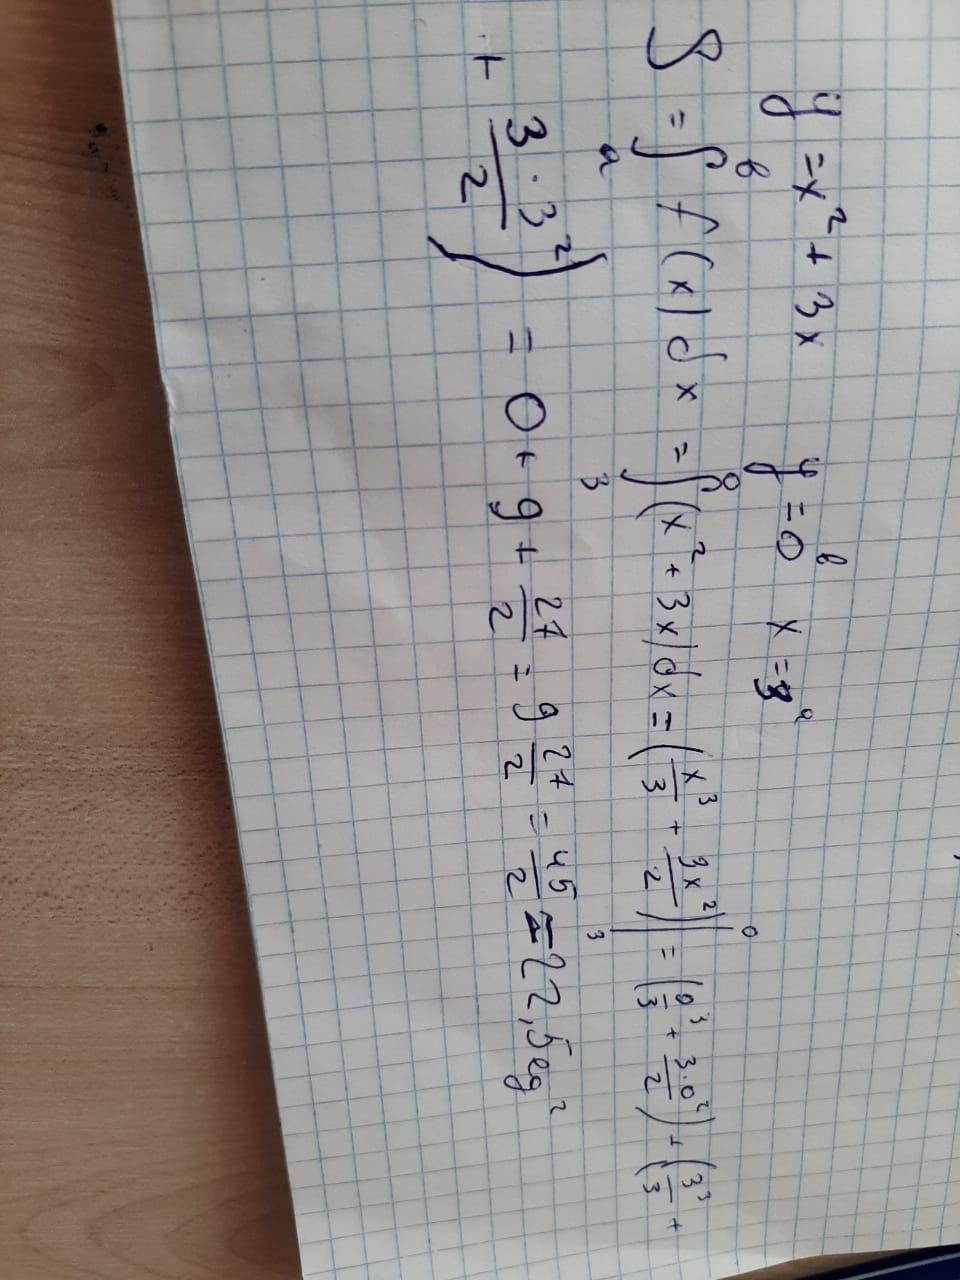 y = x² + 3x y = 0 b x = 3 a
S = ∫ₐᵇ f(x)dx = ∫₃⁰ (x² + 3x)dx = (x³/3 + 3x²/2)|₃⁰ = (0³/3 + 3·0²/2) + (3³/3 +
+ 3·3²/2) = 0 + 9 + 27/2 = 9 27/2 = 45/2 = 22,5 eg²